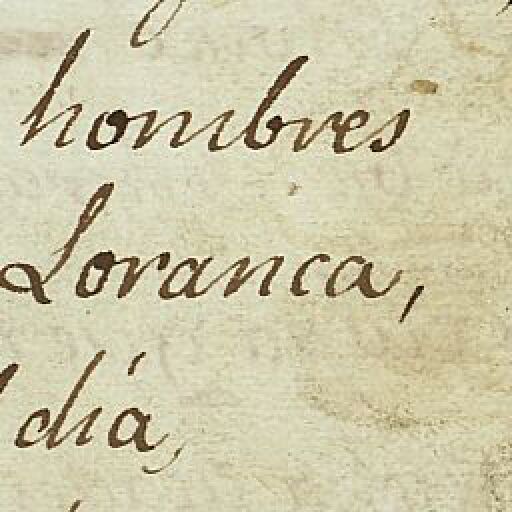 hombres
Loranca,
día,